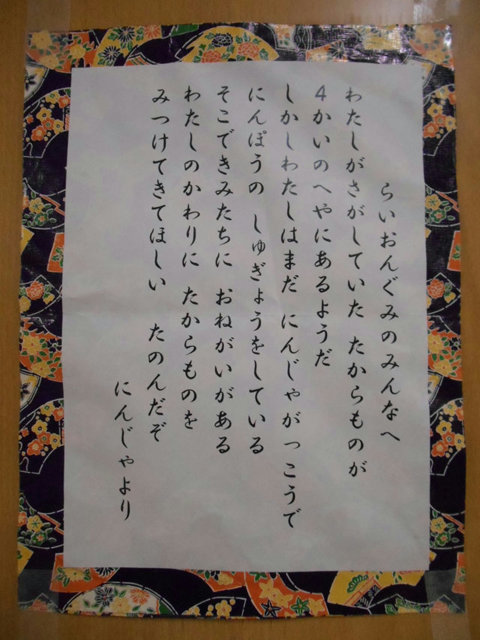 らいおんぐみのみんなへ
わたしがさがしていた たからものが
4かいのへやにあるようだ
しかしわたしはまだ にんじゃがっこうで
にんぽうの しゅぎょうをしている
そこできみたちに おねがいがある
わたしのかわりに たからものを
みつけてきてほしい たのんだぞ
にんじゃより